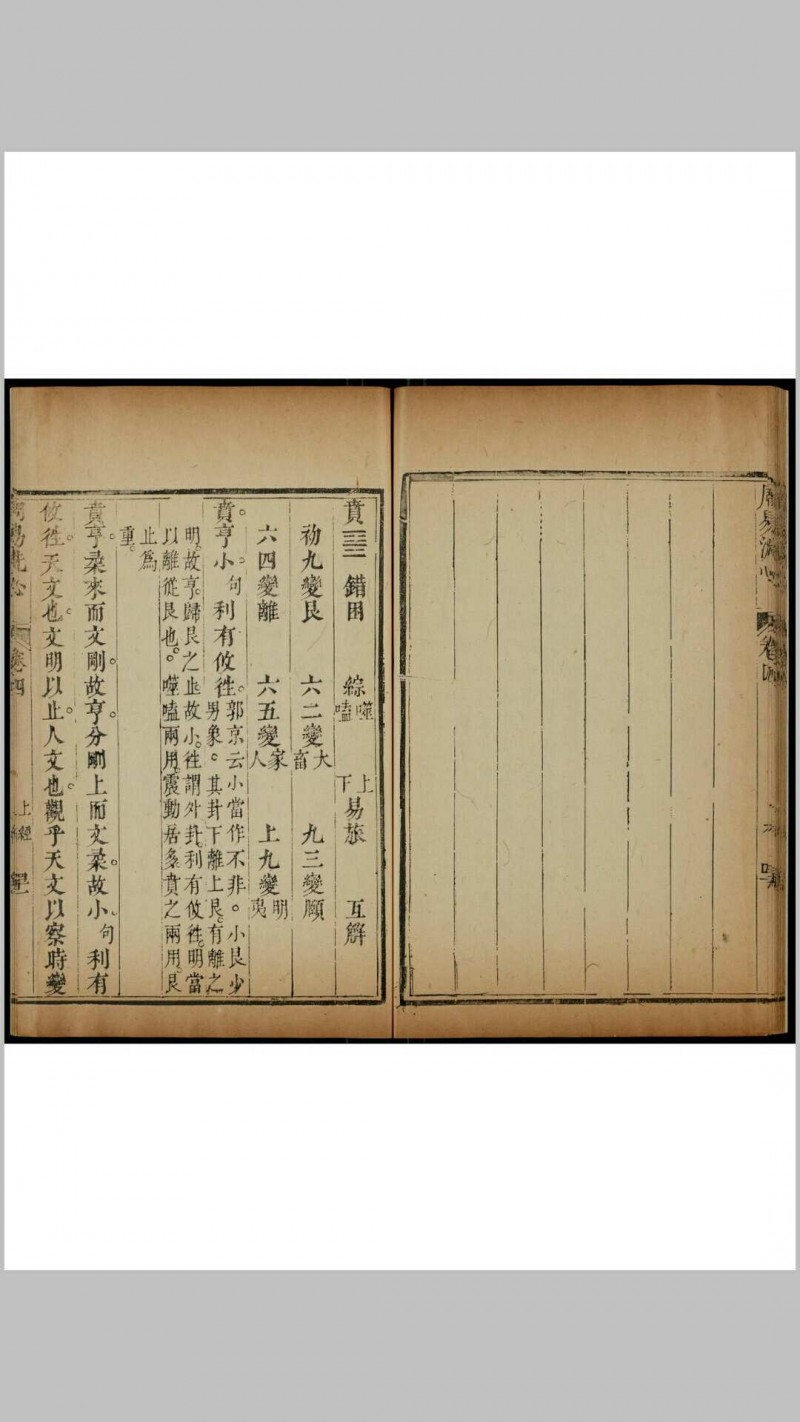 周易洗心
卷四
賁 ䷕ 錯困 綜噬嗑 上下易旅 互解
初九變艮 六二變大畜 九三變頤
六四變離 六五變家人 上九變明夷
賁。亨小。句利有攸往。郭京云小當作不非。小艮少
男象。其卦下離上艮。有離之
明。故亨。歸艮之止故小。往謂外卦。利有攸往。明當
以離從艮也。噬嗑兩用。震動居多賁之兩用。艮
止爲
重。
賁亨。柔來而文剛。故亨。分剛上而文柔。故小。句利有
攸往。天文也。文明以止。人文也。觀乎天文以察時變
周易洗心
卷四
上經